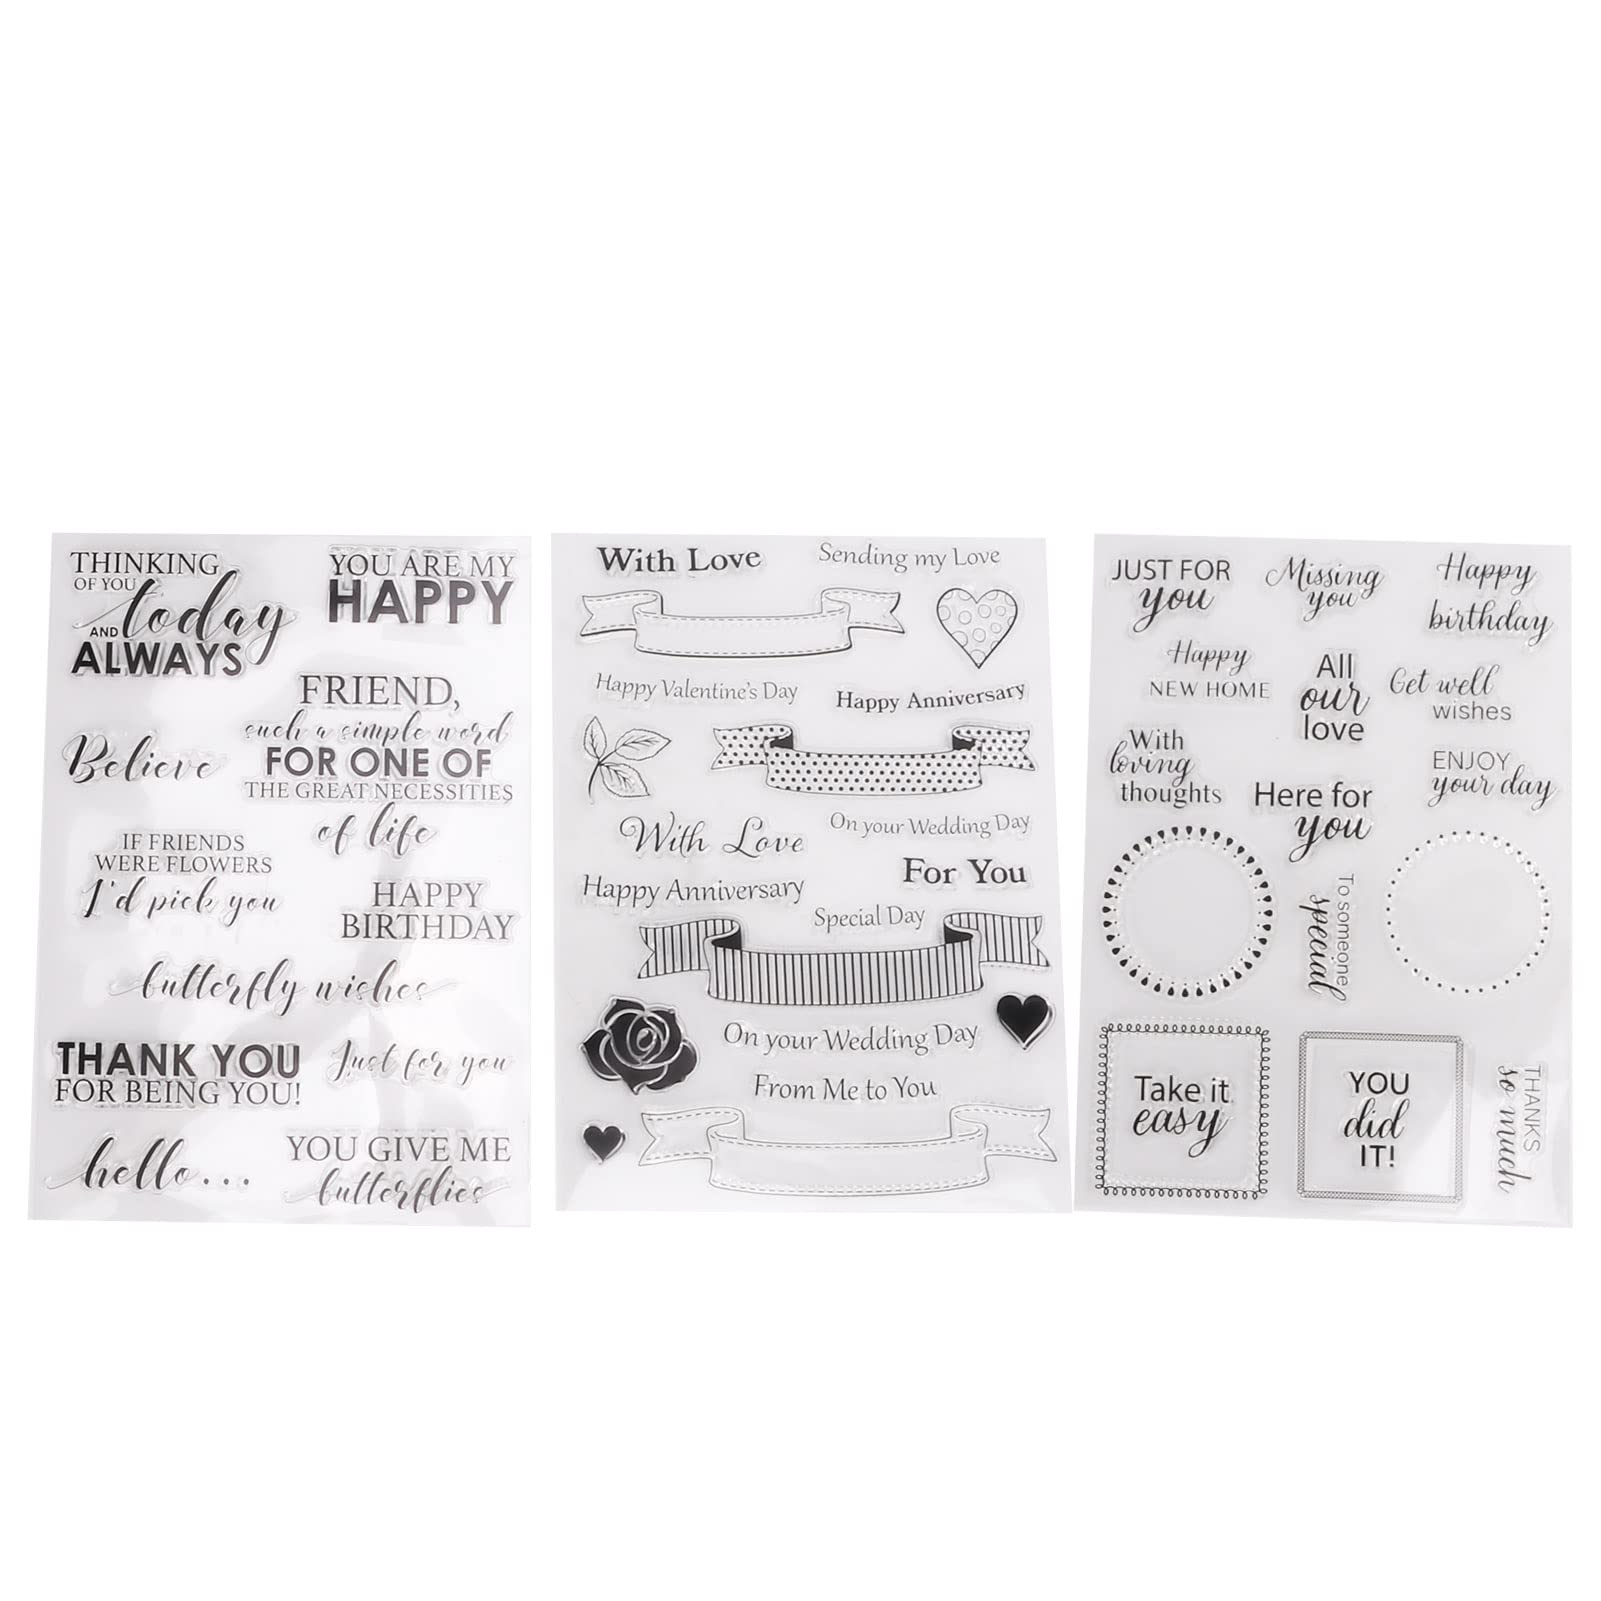 THINKING
OF YOU
today
AND
ALWAYS
YOU ARE MY
HAPPY
FRIEND,
such a simple word
FOR ONE OF
THE GREAT NECESSITIES
of life
Believe
IF FRIENDS
WERE FLOWERS
I'd pick you
HAPPY
BIRTHDAY
butterfly wishes
THANK YOU
FOR BEING YOU!
Just for you
hello...
YOU GIVE ME
butterflies
With Love
Sending my Love
Happy Valentine's Day
Happy Anniversary
With Love
On your Wedding Day
For You
Happy Anniversary
Special Day
On your Wedding Day
From Me to You
JUST FOR
you
Missing
you
Happy
birthday
Happy
NEW HOME
All
our
love
Get well
wishes
With
loving
thoughts
Here for
you
ENJOY
your day
To someone
special
Take it
easy
YOU
did
IT!
THANKS
so much